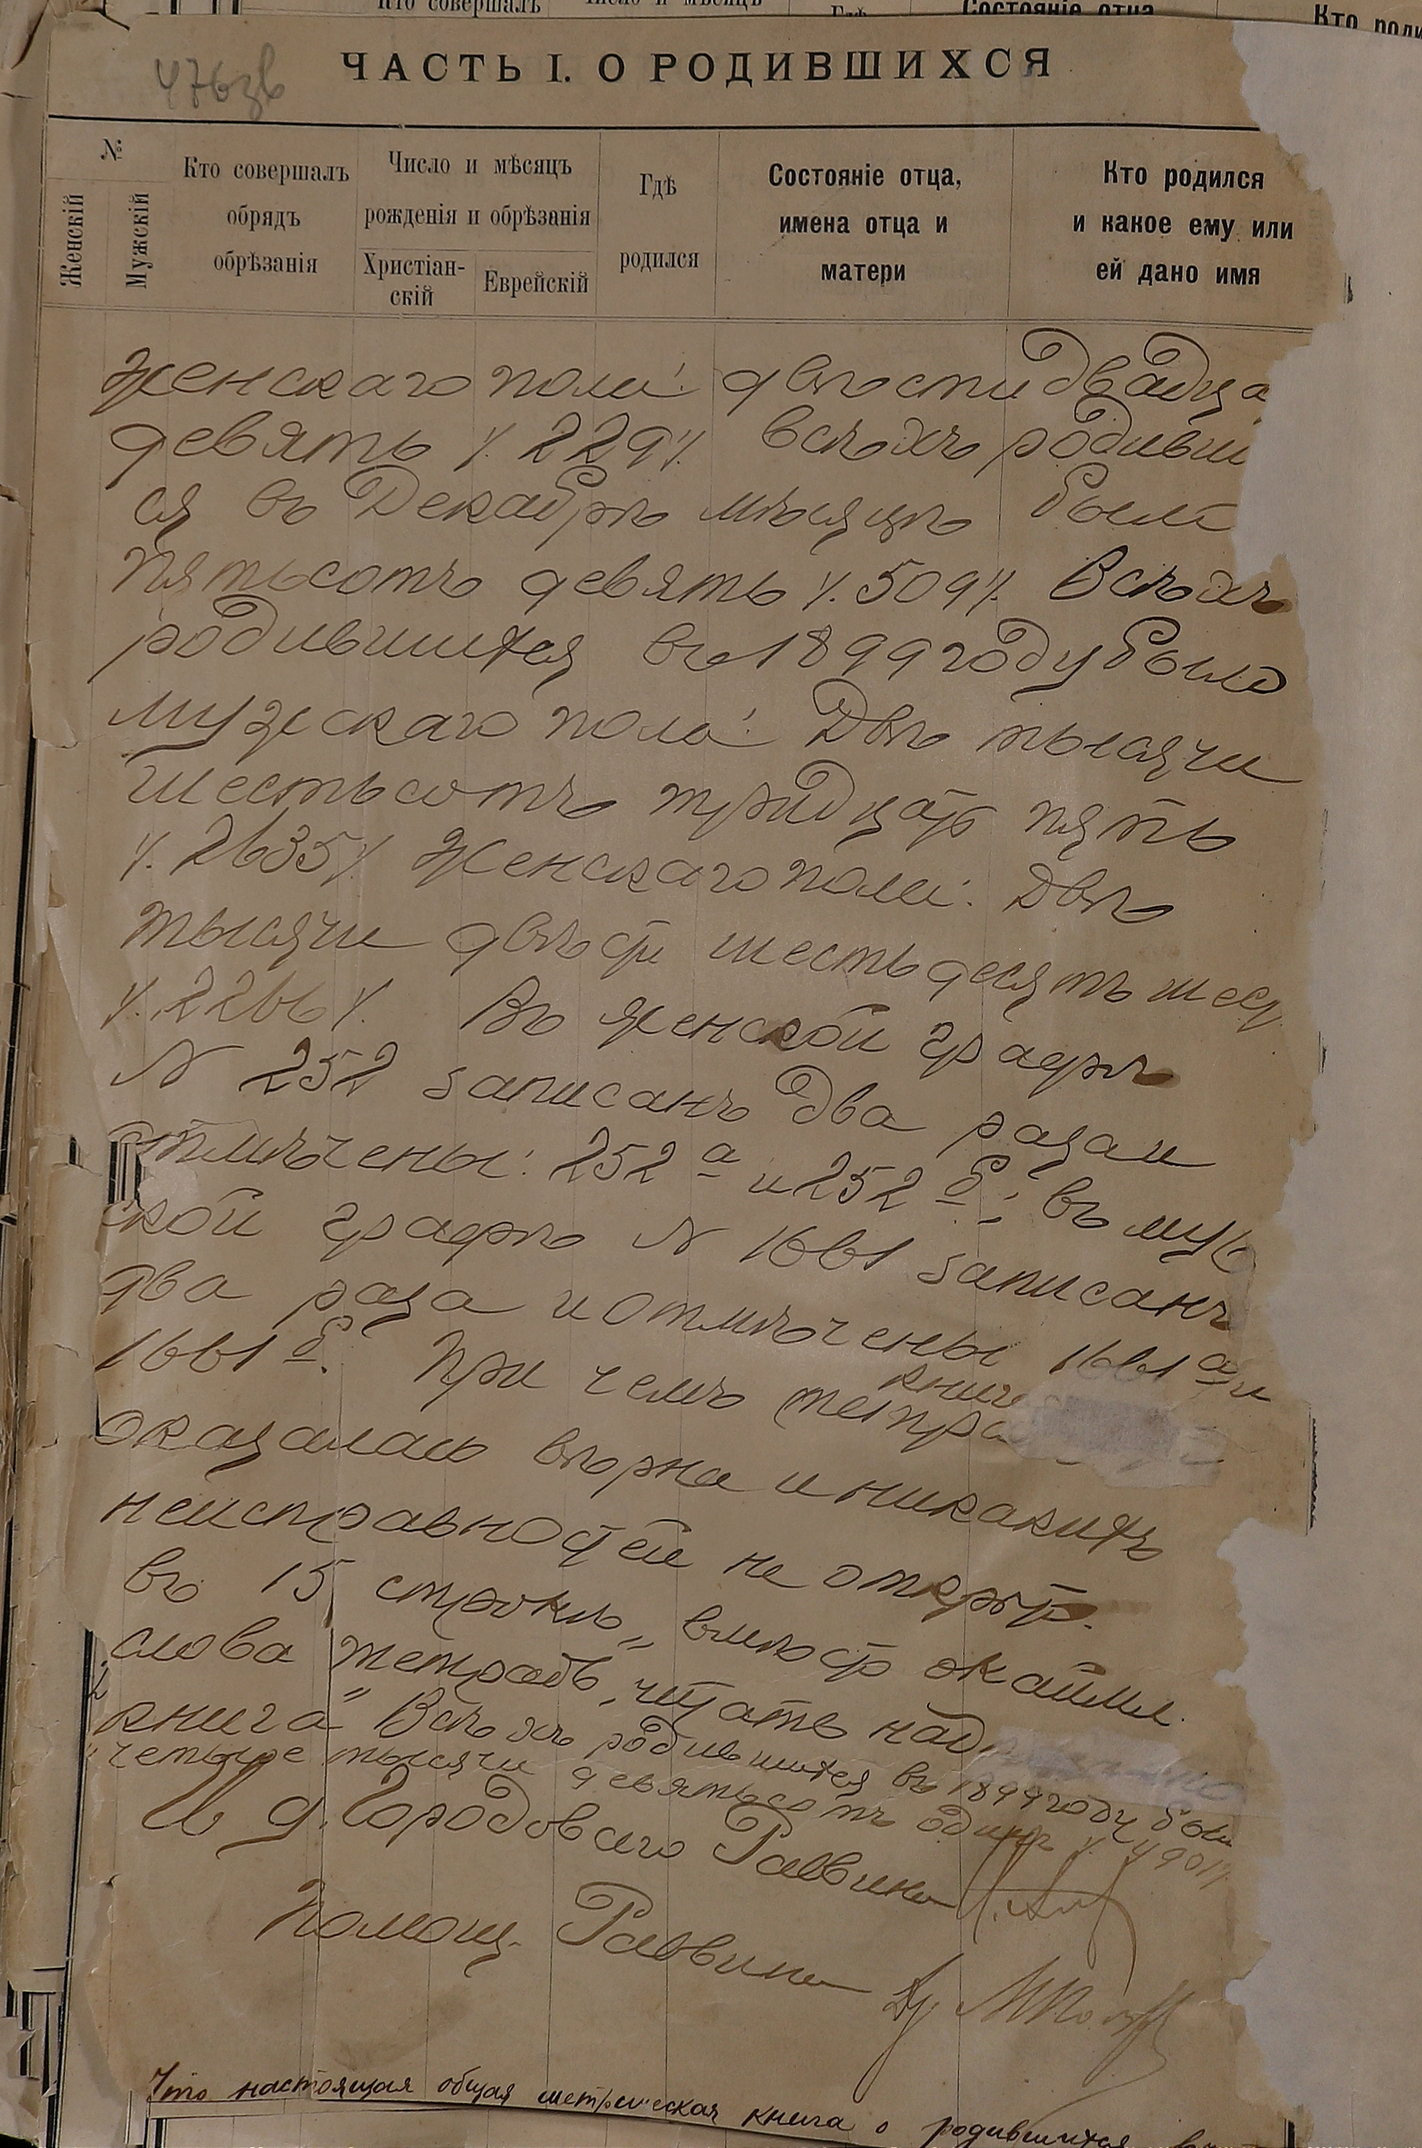 Кто совершалъ
Состояніе отца
476зв
ЧАСТЬ I. О РОДИВШИХСЯ
№
Женскій
Мужскій
Кто совершалъ
обрядъ
обрѣзанія
Число и мѣсяцъ
рожденія и обрѣзанія
Христіан-
скій
Еврейскій
Гдѣ
родился
Состояніе отца,
имена отца и
матери
Кто родился
и какое ему или
ей дано имя
женскаго пола: двѣсти двадца
девять /.229/. всѣхъ родивши
ся въ Декабрѣ мѣсяцѣ было
пятьсотъ девять /.509/. Всѣхъ
родившихся въ 1899 году было
мужскаго пола: Двѣ тысячи
шестьсотъ тридцать пять
/.2635/. Женскаго пола: Двѣ
тысячи двѣсти шестьдесятъ шест
/.2266/. Въ женской графѣ
N 252 записанъ два раза и
отмѣчены: 252 а и 252 б; въ муж
ской графѣ N 1661 записанъ
два раза и отмѣчены 1661 а и
книга
1661 б. При чемъ тетра
оказалась вѣрна и никакихъ
неисправностей не откры.
въ 15 строкѣ „вмѣсто окаймл.
слова „тетрадь„ читать над
книга" Всѣхъ родившихся въ 1899 году было
четыре тысячи девятьсотъ одинъ /.4901/.
И д. Городоваго Раввина
Помощ. Раввина
Что настоящая общая метрическая книга о родившихся